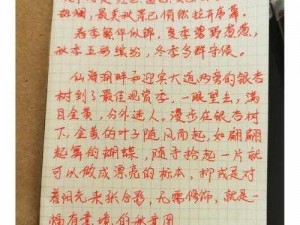 斑斓，最美秋景已悄然拉开序幕。
春季繁华似锦，夏季碧野葱葱，
秋季五彩缤纷，冬季多群守候。
仙海湖畔和迎宾大道两旁的银杏
树到了最佳观赏季，一眼望去，满
目金黄，分外迷人。漫步在银杏树
下，金黄的叶子随风而起，如翩翩
起舞的蝴蝶，随手拾起一片就
可以做成漂亮的标本，抑或是对
着阳光来张合影，无需修饰，就是一
幅有意境的秋意图